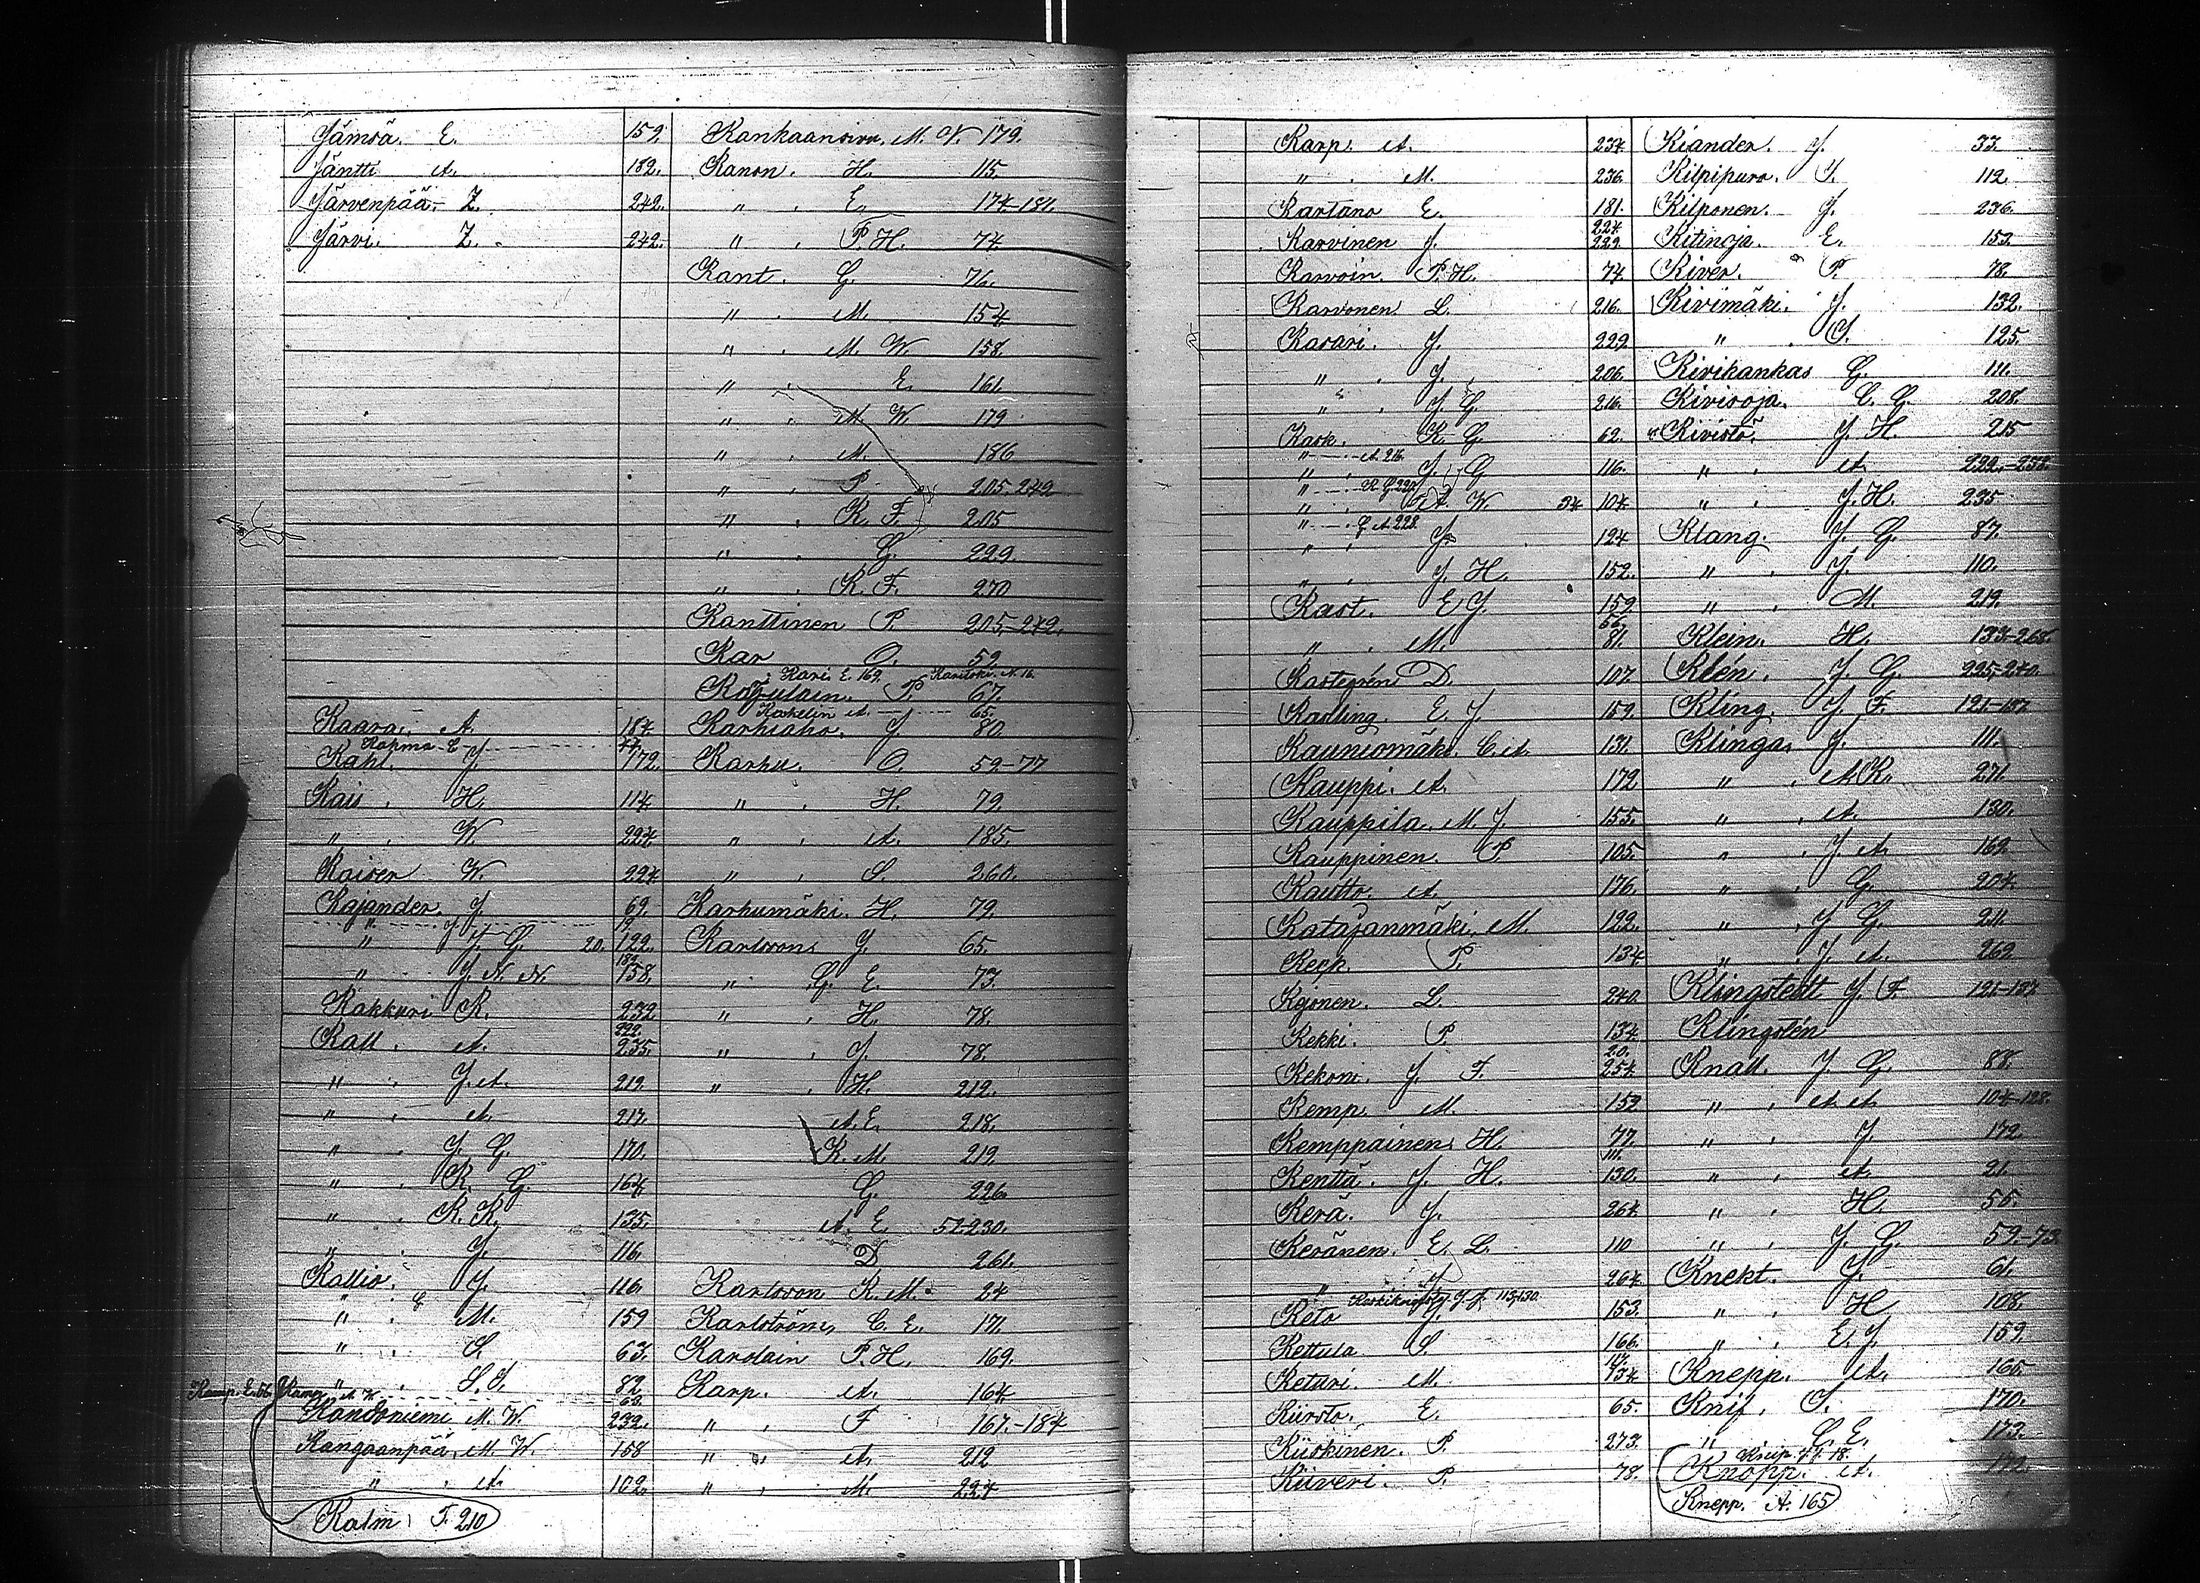 Jämsä. E. 159.
Jäntti A. 182.
Järvenpää. Z. 242.
Järvi. Z. 242.
Kaara. A. 184.
Kahma E. 44.
Kahl. J. 172.
Kais. H. 114.
" W. 224.
Kaiser W. 224.
Kajander. J. 69.
" J. 19.
" J. G. 20. 122.
" J. N. N. 158.
Kakkuri K. 232.
Kall. A. 222. 235.
" J. A. 219.
" A. 217.
" J. G. 170.
" K. G. 164.
" K. K. 135.
" J. 116.
Kallio. J. 116.
" M. 159
" S. 63.
" S. J. 82.
Kamp. E. 56.
Kandoniemi M. W. 232.
Kangaanpää, M. W. 158
" A. 102.
Kalm. F. 210
Kankaansivu, M. W. 179.
Kanon. H. 115.
" E. 174-181.
" P. H. 74.
Kant. G. 76.
" M. 154
" M. W. 158.
" E. 161.
" M W. 179
" M. 186
" P. 205-242
" K. F. 205
" G. 229.
" K. F. 270
Kanttinen P. 205-242.
Kar O. 59.
Kari E. 169.
P. 67.
A. 65.
Karhiaho. J. 80.
Karhu. O. 59-77
" H. 79.
" A. 185.
" S. 260.
Karhumäki. H. 79.
Karlsson. J. 65.
" G. E. 73.
" H. 78.
" J. 78.
" H. 212.
A. E. 218.
K. M. 219.
G. 226.
A. E. 52-230.
D 261.
Karlsson K. M. 24
Karlström, C. E. 171.
Karolain P. H. 169.
Karp. A. 164
" F 167.-184
" A. 212
" M. 224
Karp. A. 234.
" M. 236.
Kartano E. 181.
Karvinen J. 224. 229.
Karvoin P. H. 74
Karvonen L. 216.
Kasari. J. 229.
" J. 206.
" J. G. 216.
Kask. K. G. 62.
" A. 216.
" J. G 116.
" K. G 220
" A. W. 34 104.
" G A. 228
" J. 124
" J. H. 152.
Kast. E J. 159
" M. 81.
Kastegrén D. 107.
Kastling. E. J. 159.
Kauniomäki. C. A. 131.
Kauppi. A. 172
Kauppila. M. J. 155.
Kauppinen. P. 105.
Kautto. A. 176.
Katajanmäki. M. 122.
Keck. P. 134.
Kejonen. L. 240.
Kekki. P. 134.
Kekoni. J. F. 20. 254.
Kemp. M. 152
Kemppainen. H. 77.
Kenttä. J. H. 111. 130.
Kerä. J. 264.
Keränen. E. L. 110
" J 264.
J. F. 113,130.
Keto J. 153.
Kettula S. 166.
Keturi. M. 134
Kiirsto. E. 65.
Kiiskinen. P. 273.
Kiiveri. P. 78.
Kiander. J. 33.
Kilpipuro. S. 112.
Kilponen. J. 236.
Kitinoja. E. 153.
Kiver. P. 78.
Kivimäki. J. 132.
" S. 125.
Kivikankas G. 111.
Kivisoja. C. G. 208.
Kivistö. J. H. 215
" A. 222.-252.
" J. H. 235.
Klang. J. G. 87.
" J. 110.
" M. 219.
Klein. H. 133-268.
Klén. J. G. 225,-240.
Kling. J. F. 121-137.
Klinga. J. 111.
" A. K. 271.
" A. 130.
" J. A. 169
" G. 204.
" J G. 211.
" J. A. 262
Klingstedt J. F. 121-137.
Klingstén
Knall. J G. 88.
" A. A. 104-128.
" J. 172
" A. 21.
" H. 55.
" J. G. 59-73.
Knekt. J. 61.
" H 108.
" E. J. 159.
Knepp. A. 165.
Knif. S. 170.
" C. E. 173.
Kneip. J. J. 18.
Knopp. A.
Knepp. A. 165